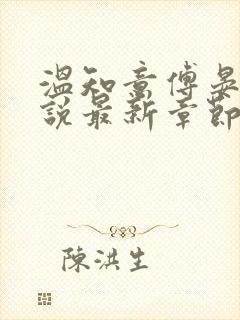 溫知意傅晏
說最新章節
陳洪生